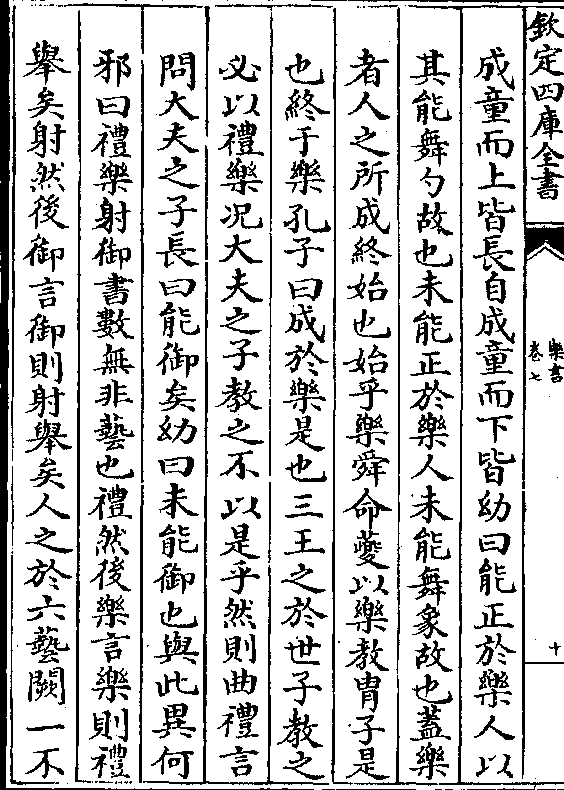 欽定四庫全書
樂書
卷七
十
成童而上皆長自成童而下皆幼曰能正於樂人以
其能舞勺故也未能正於樂人未能舞象故也蓋樂
者人之所成終始也始乎樂舜命夔以樂教胄子是
也終于樂孔子曰成於樂是也三王之於世子教之
必以禮樂况大夫之子教之不以是乎然則曲禮言
問大夫之子長曰能御矣幼曰未能御也與此異何
邪曰禮樂射御書數無非藝也禮然後樂言樂則禮
舉矣射然後御言御則射舉矣人之於六藝闕一不